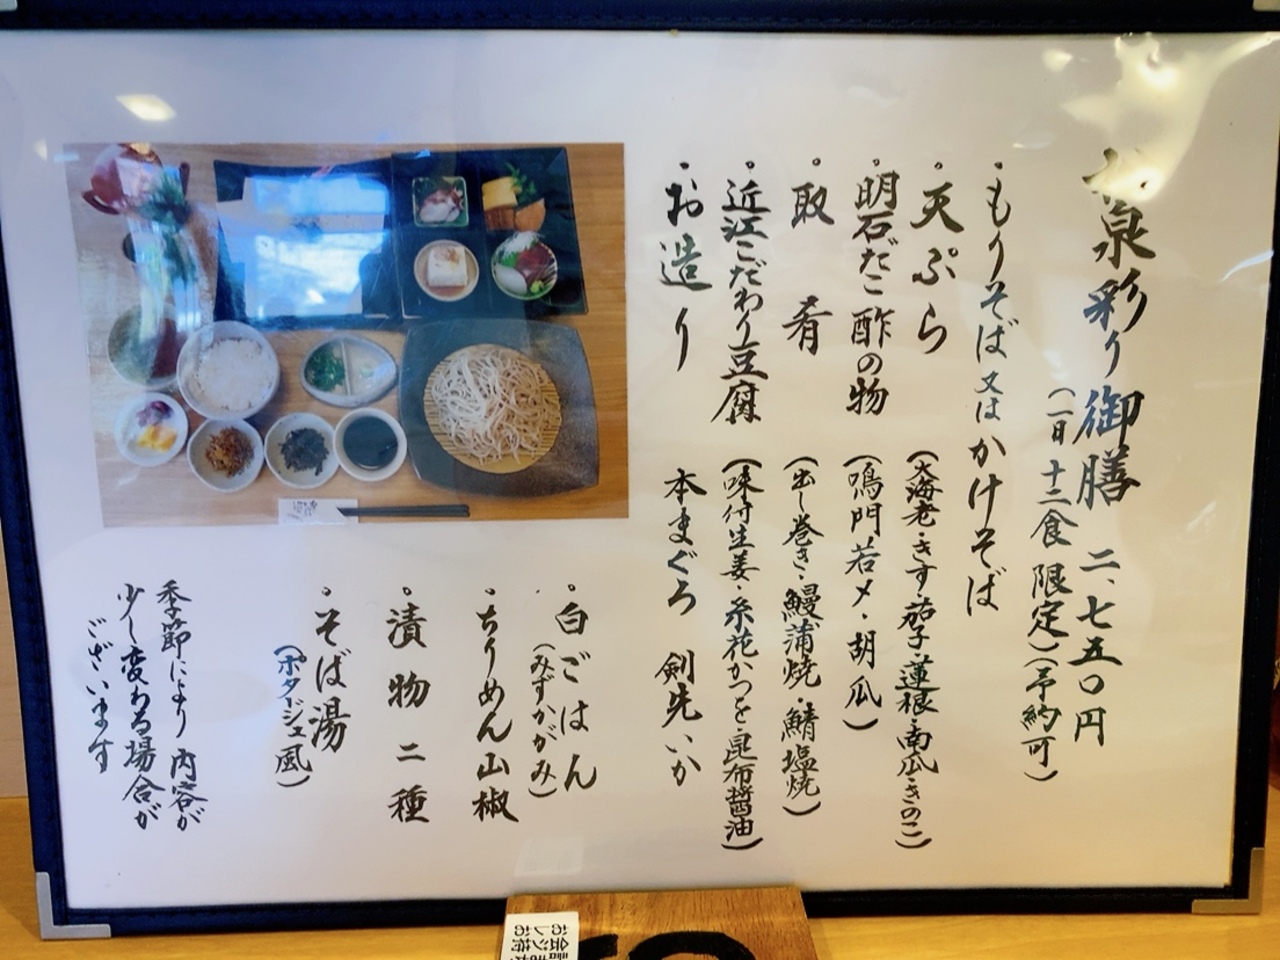 泉彩り御膳 二、七五〇円
(一日 十二食 限定)(予約可)
・もりそば又はかけそば
・天ぷら (大海老・きす・茄子・蓮根・南瓜・きのこ)
・明石だこ酢の物 (鳴門若メ・胡瓜)
・取肴 (出し巻き・鰻蒲焼・鯖塩焼)
・近江こだわり豆腐 (味付生姜・糸花かつを・昆布醤油)
・お造り 本まぐろ 剣先いか
・白ごはん
(みずかがみ)
・ちりめん山椒
・漬物二種
・そば湯
(ポタージュ風)
季節により 内容が
少し変わる場合が
ございます